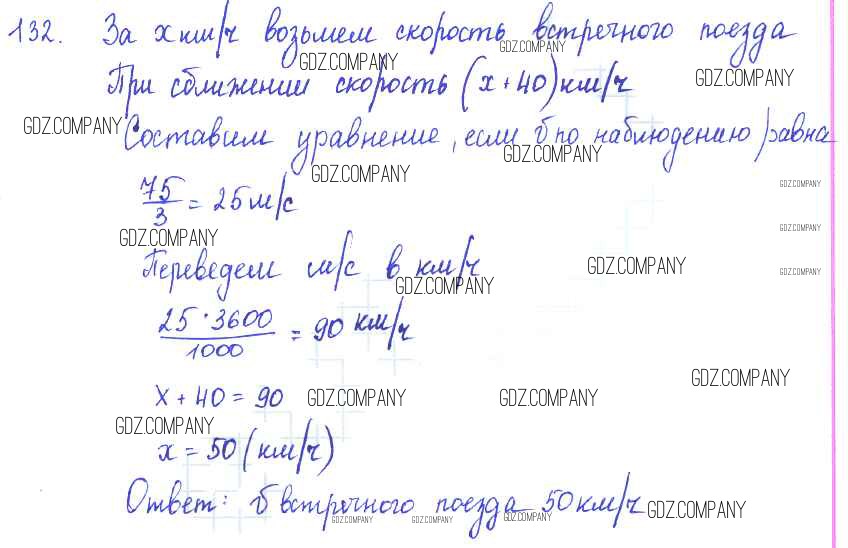 132. За x км/ч возьмем скорость встречного поезда
GDZ.COMPANY GDZ.COMPANY
При сближении скорость (x + 40) км/ч GDZ.COMPANY
GDZ.COMPANY Составим уравнение, если υ по наблюдению равна
GDZ.COMPANY GDZ.COMPANY
75/3 = 25 м/с GDZ.COMPANY
GDZ.COMPANY GDZ.COMPANY
Переведем м/с в км/ч GDZ.COMPANY GDZ.COMPANY
GDZ.COMPANY
25 · 3600/1000 = 90 км/ч
GDZ.COMPANY
x + 40 = 90 GDZ.COMPANY GDZ.COMPANY
GDZ.COMPANY
x = 50 (км/ч)
Ответ: υ встречного поезда 50 км/ч GDZ.COMPANY
GDZ.COMPANY GDZ.COMPANY GDZ.COMPANY